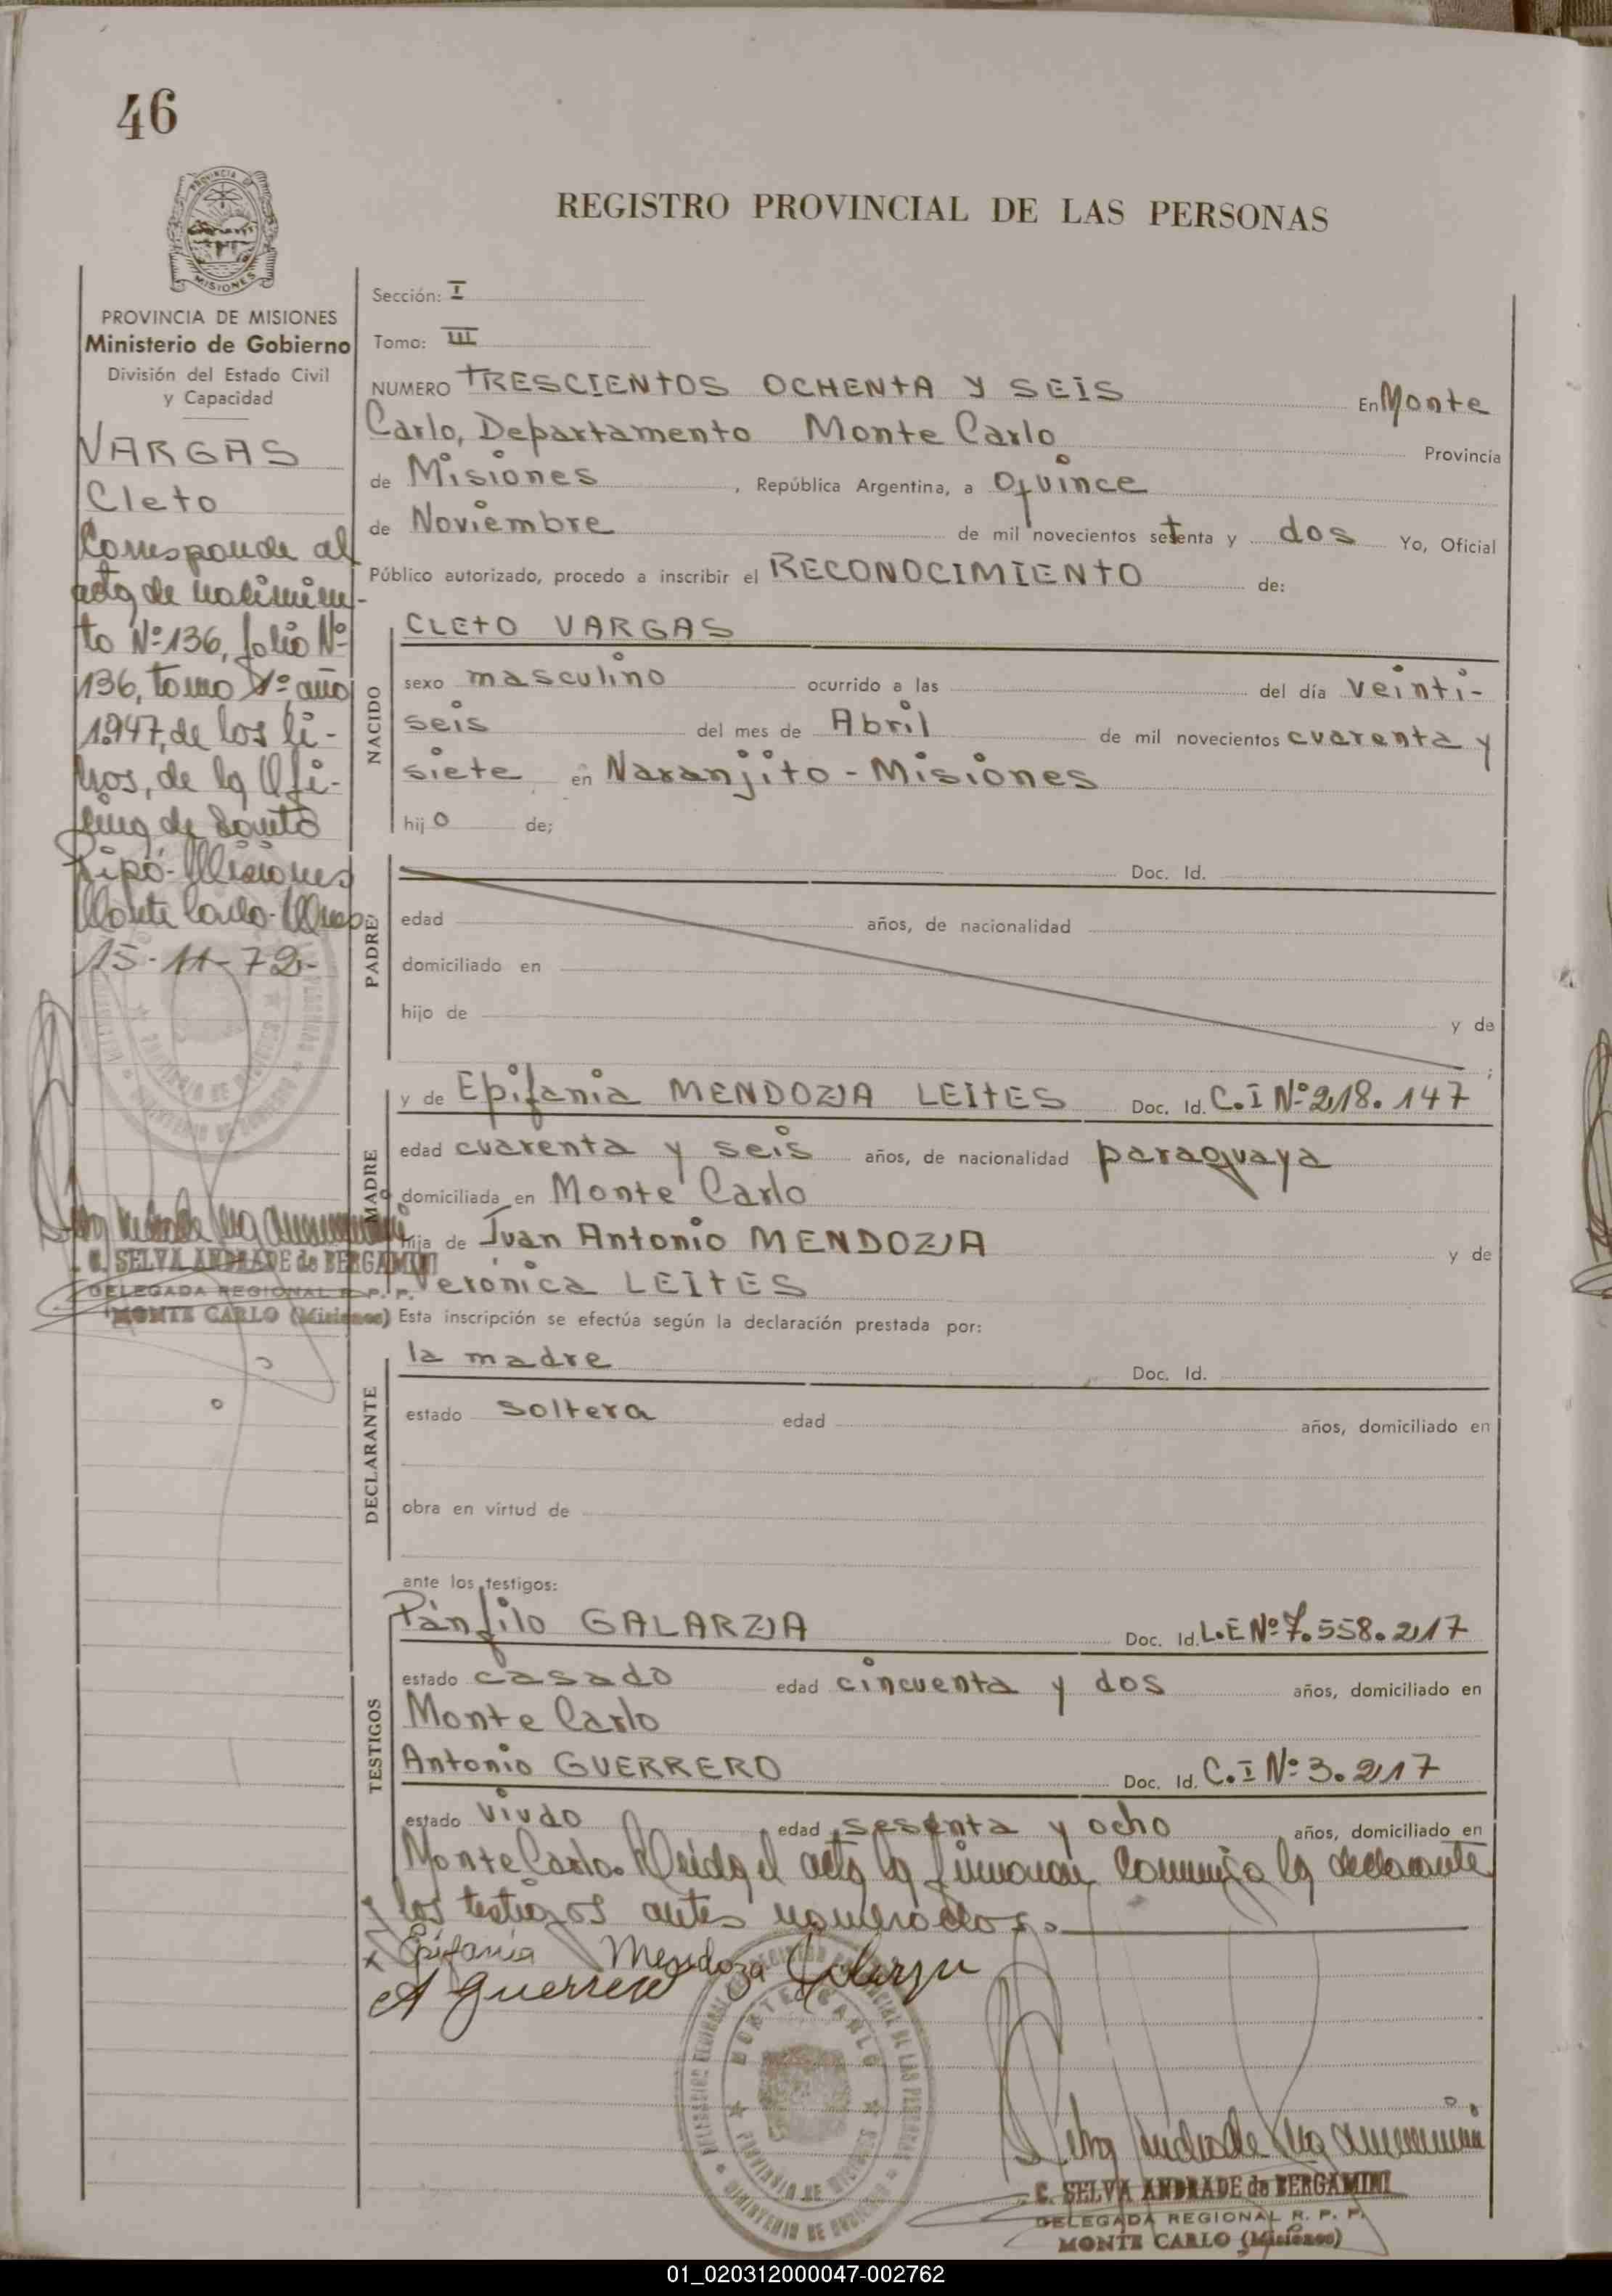 46
REGISTRO PROVINCIAL DE LAS PERSONAS
PROVINCIA DE MISIONES
PROVINCIA DE MISIONES
Ministerio de Gobierno
División del Estado Civil
y Capacidad
VARGAS
Cleto
Corresponde al
acta de nacimien-
to Nº 136, folio Nº
136, tomo 1º año
1947, de los li-
bros, de la Ofi-
cina de Santo
Pipó- Misiones
Monte Carlo-
15-11-72-
C. SELVA ANDRADE de BERGAMINI
DELEGADA REGIONAL R. P. P.
MONTE CARLO (Misiones)
Sección: I
Tomo: III
NUMERO TRESCIENTOS OCHENTA Y SEIS En Monte
Carlo, Departamento Monte Carlo Provincia
de Misiones, República Argentina, a quince
de Noviembre de mil novecientos setenta y dos Yo, Oficial
Público autorizado, procedo a inscribir el RECONOCIMIENTO de:
NACIDO
CLETO VARGAS
sexo masculino ocurrido a las del día veinti-
seis del mes de Abril de mil novecientos cuarenta y
siete en Naranjito - Misiones
hijo de;
PADRE
Doc. Id.
edad años, de nacionalidad
domiciliado en
hijo de y de
;
MADRE
y de Epifania MENDOZA LEITES Doc. Id. C.I Nº 218.147
edad cuarenta y seis años, de nacionalidad paraguaya
domiciliada en Monte Carlo
hija de Juan Antonio MENDOZA y de
Verónica LEITES
Esta inscripción se efectúa según la declaración prestada por:
DECLARANTE
la madre Doc. Id.
estado soltera edad años, domiciliado en
obra en virtud de
ante los testigos:
TESTIGOS
Pánfilo GALARZA Doc. Id. L.E Nº 7.558.217
estado casado edad cincuenta y dos años, domiciliado en
Monte Carlo
Antonio GUERRERO Doc. Id. C.I Nº 3.217
estado viudo edad sesenta y ocho años, domiciliado en
Monte Carlo. Leida el acta la firmaron conmigo la declarante
y los testigos antes nombrados.
x Epifania Mendoza Galarza
A Guerrero
MONTE CARLO
PROVINCIA DE MISIONES
C. SELVA ANDRADE de BERGAMINI
DELEGADA REGIONAL R. P. P.
MONTE CARLO (Misiones)
01_020312000047-002762